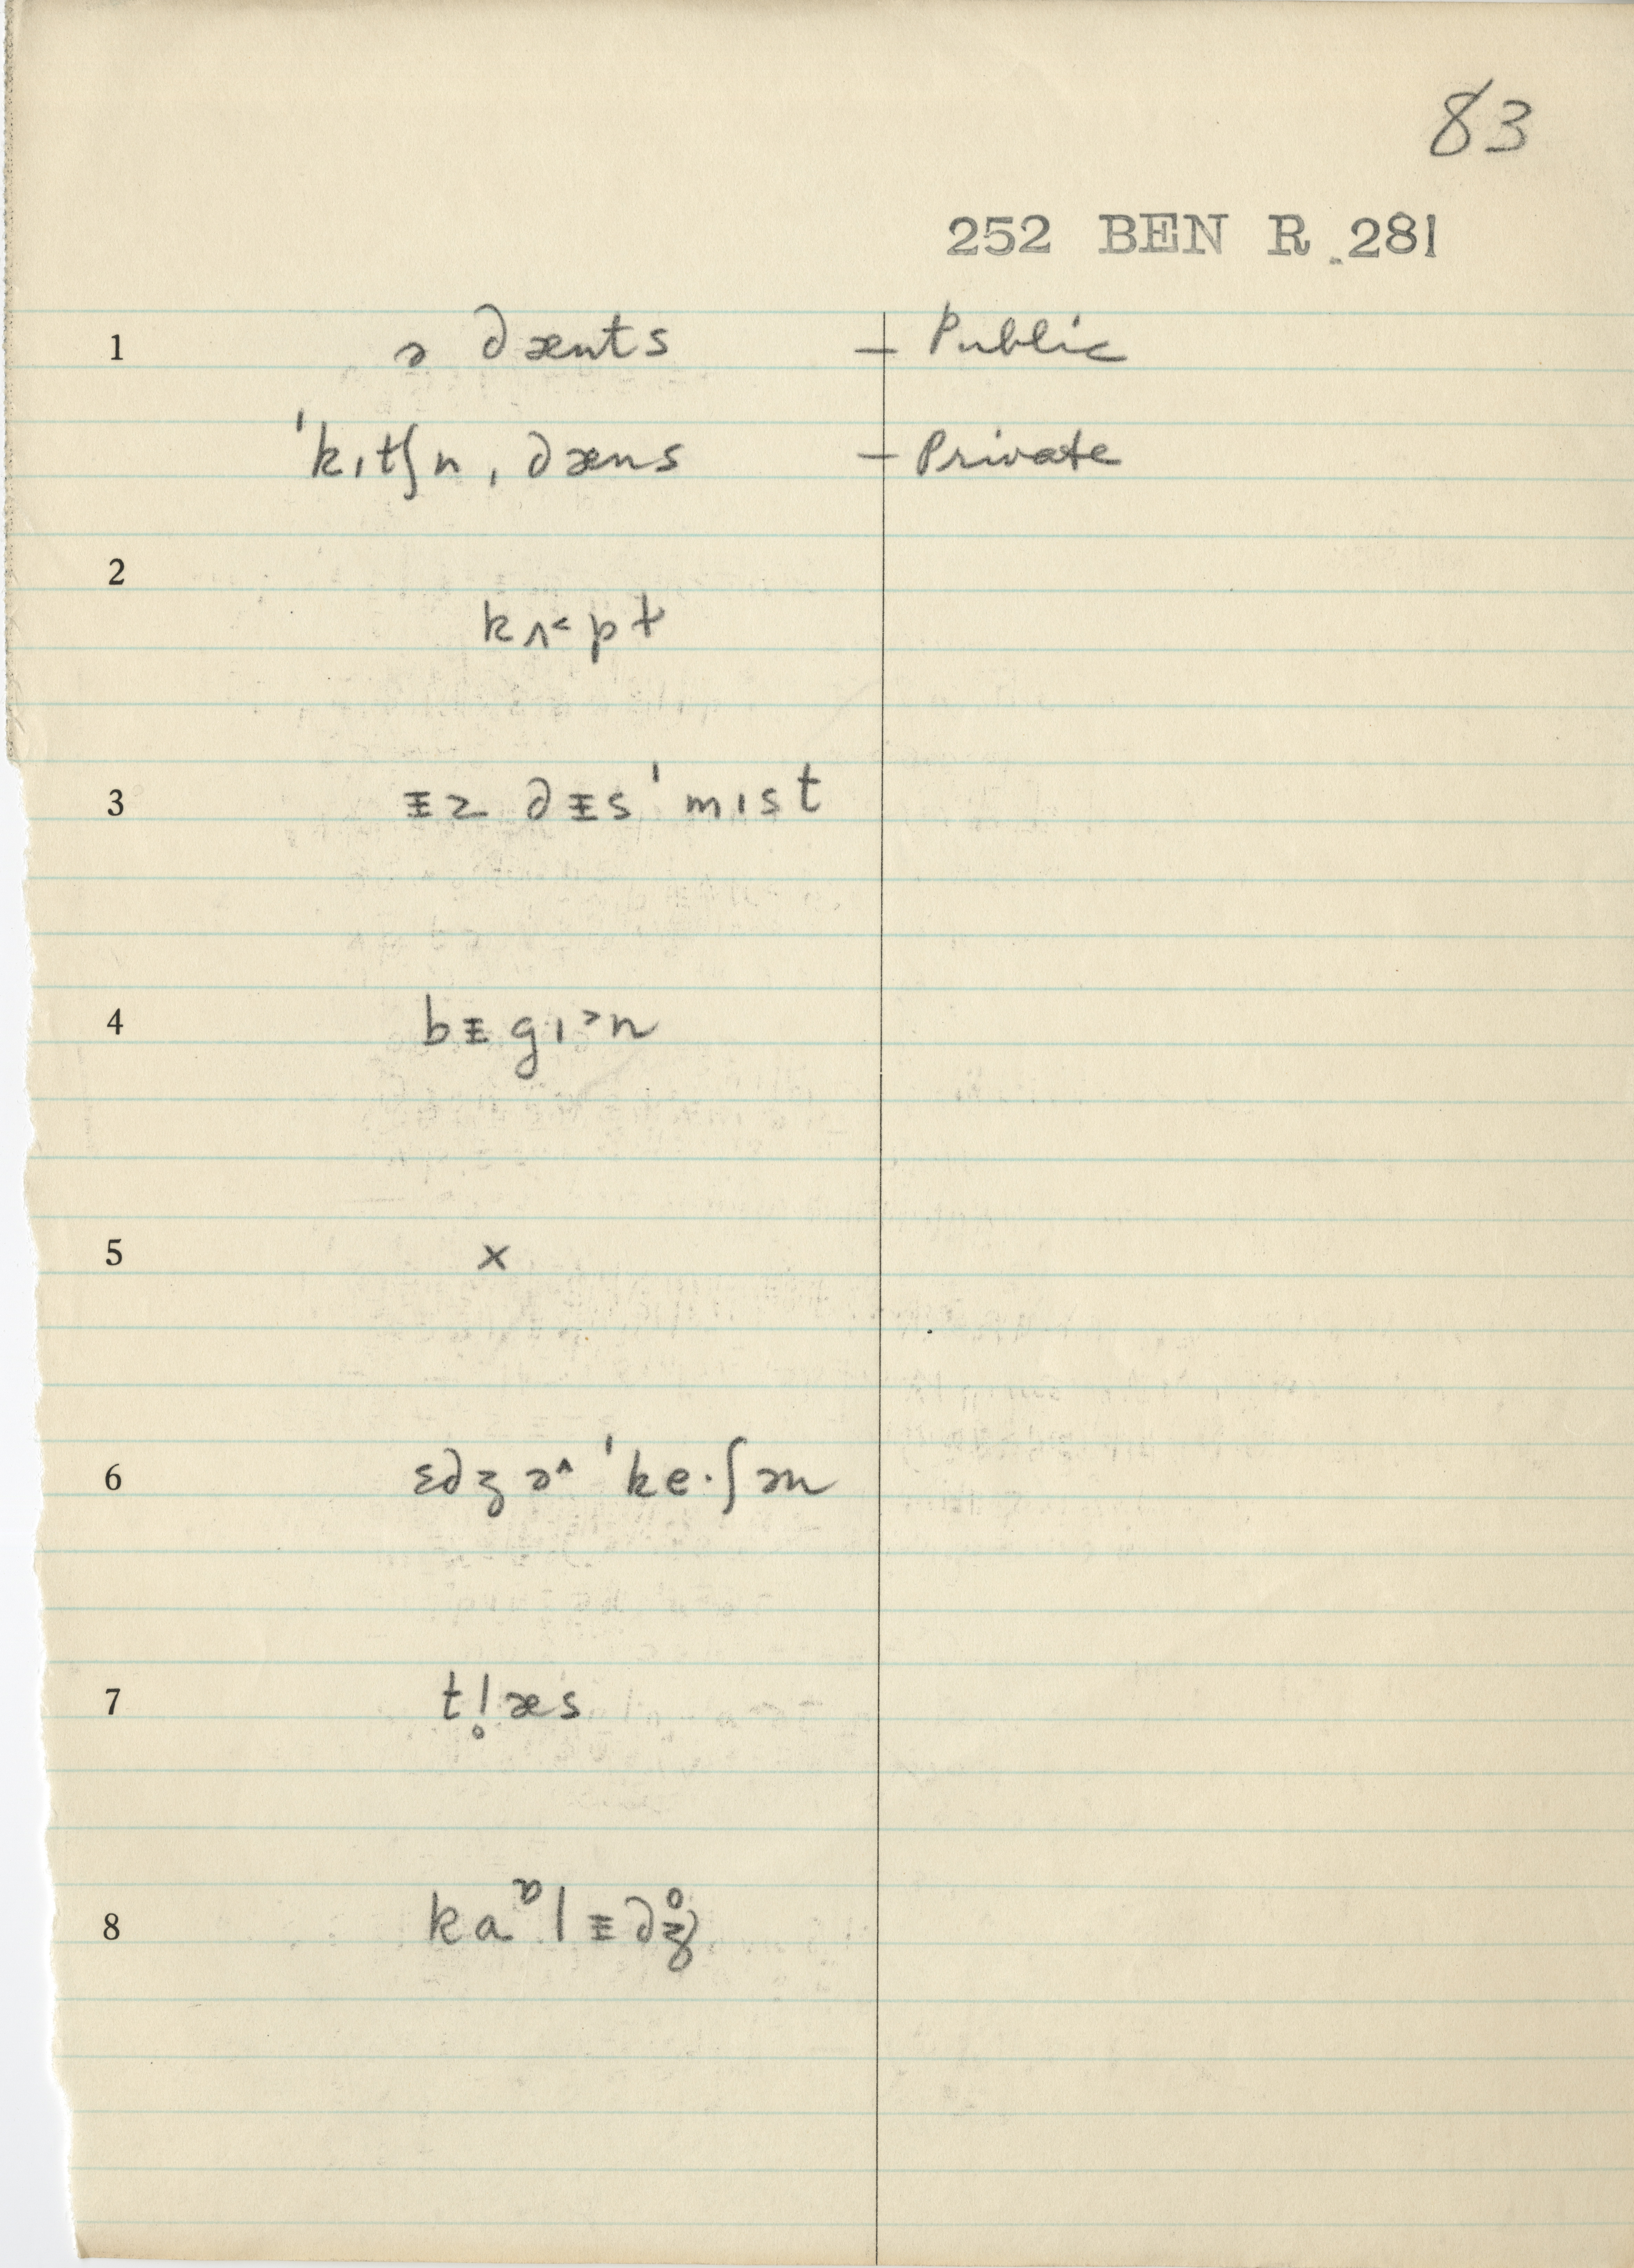 83
252 BEN R. 281
1 ə dænts – Public
ˈkɪtʃn̩ˌdæns – Private
2
kʌ˂pt
3 ᵻz dᵻsˈmɪst
4 bᵻgɪ˃n
5 x
6 ɛdʒə˄ˈke·ʃən
7 tl̥æs
8 kaᶛlᵻdʒ̊